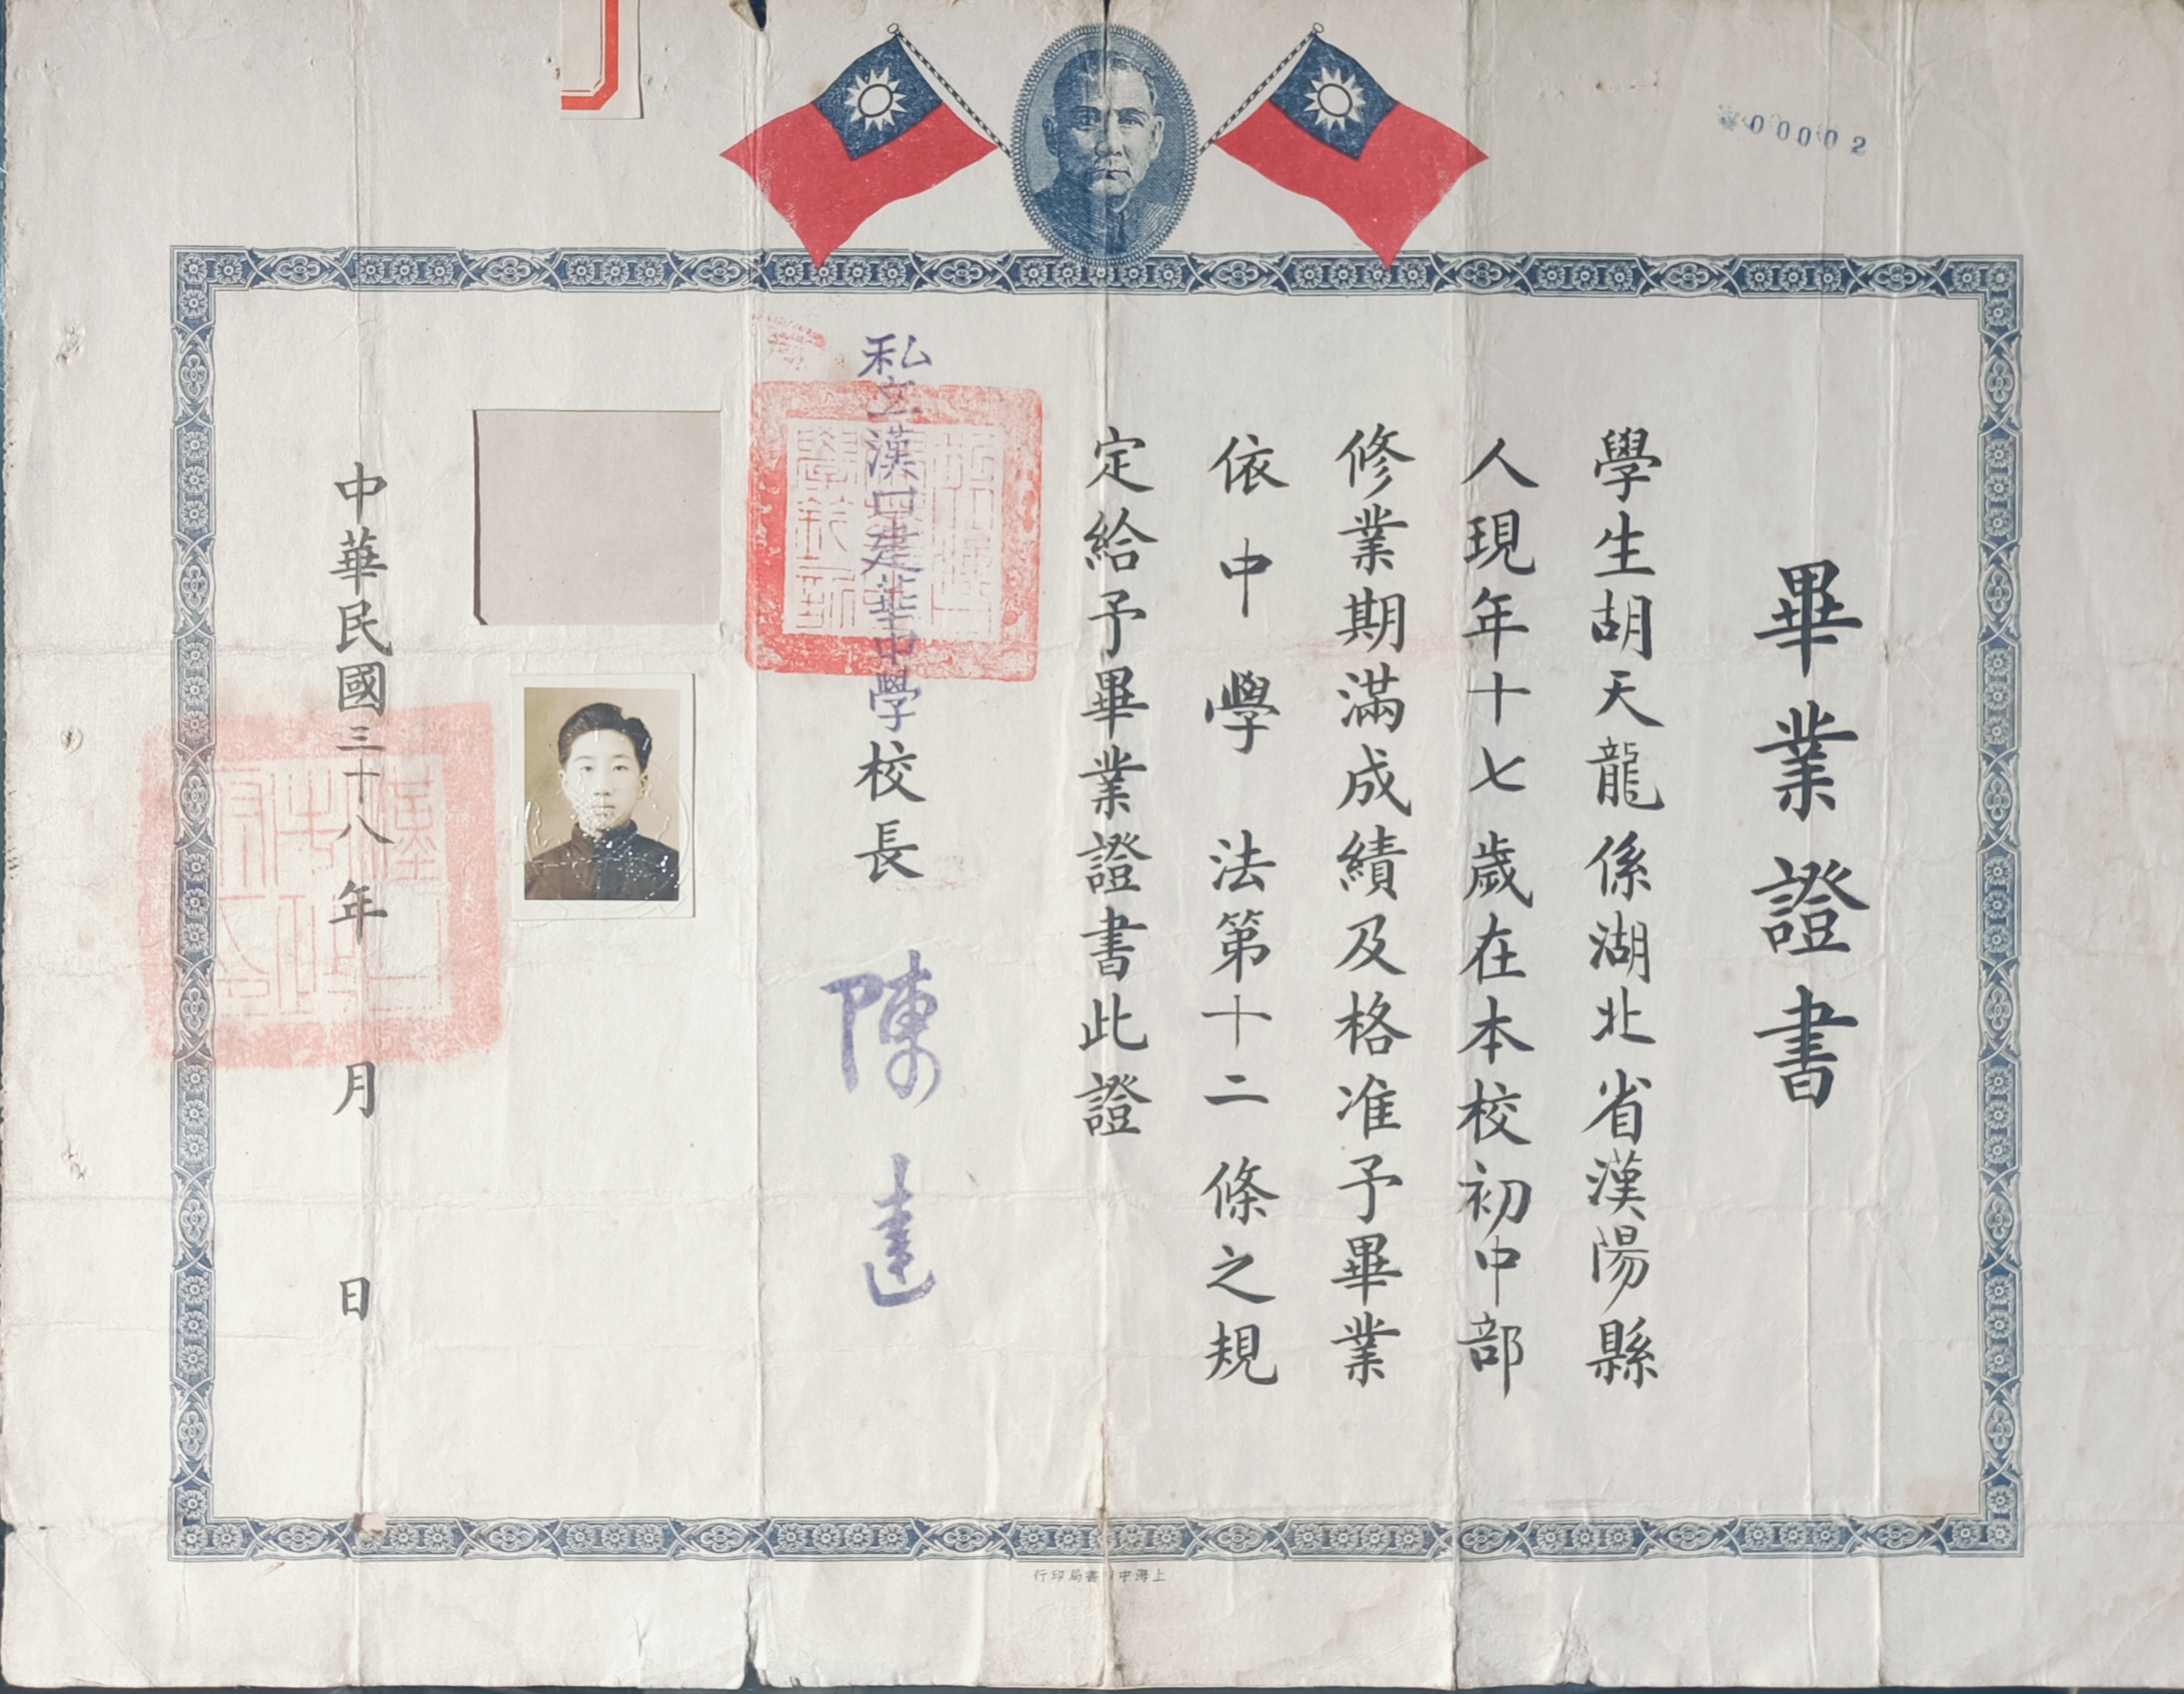 00002
畢業證書
學生胡天龍係湖北省漢陽縣
人現年十七歲在本校初中部
修業期滿成績及格准予畢業
依中學法第十二條之規
定給予畢業證書此證
私立漢口建華中學校長 陳達
中華民國三十八年 月 日
上海中 書局印行